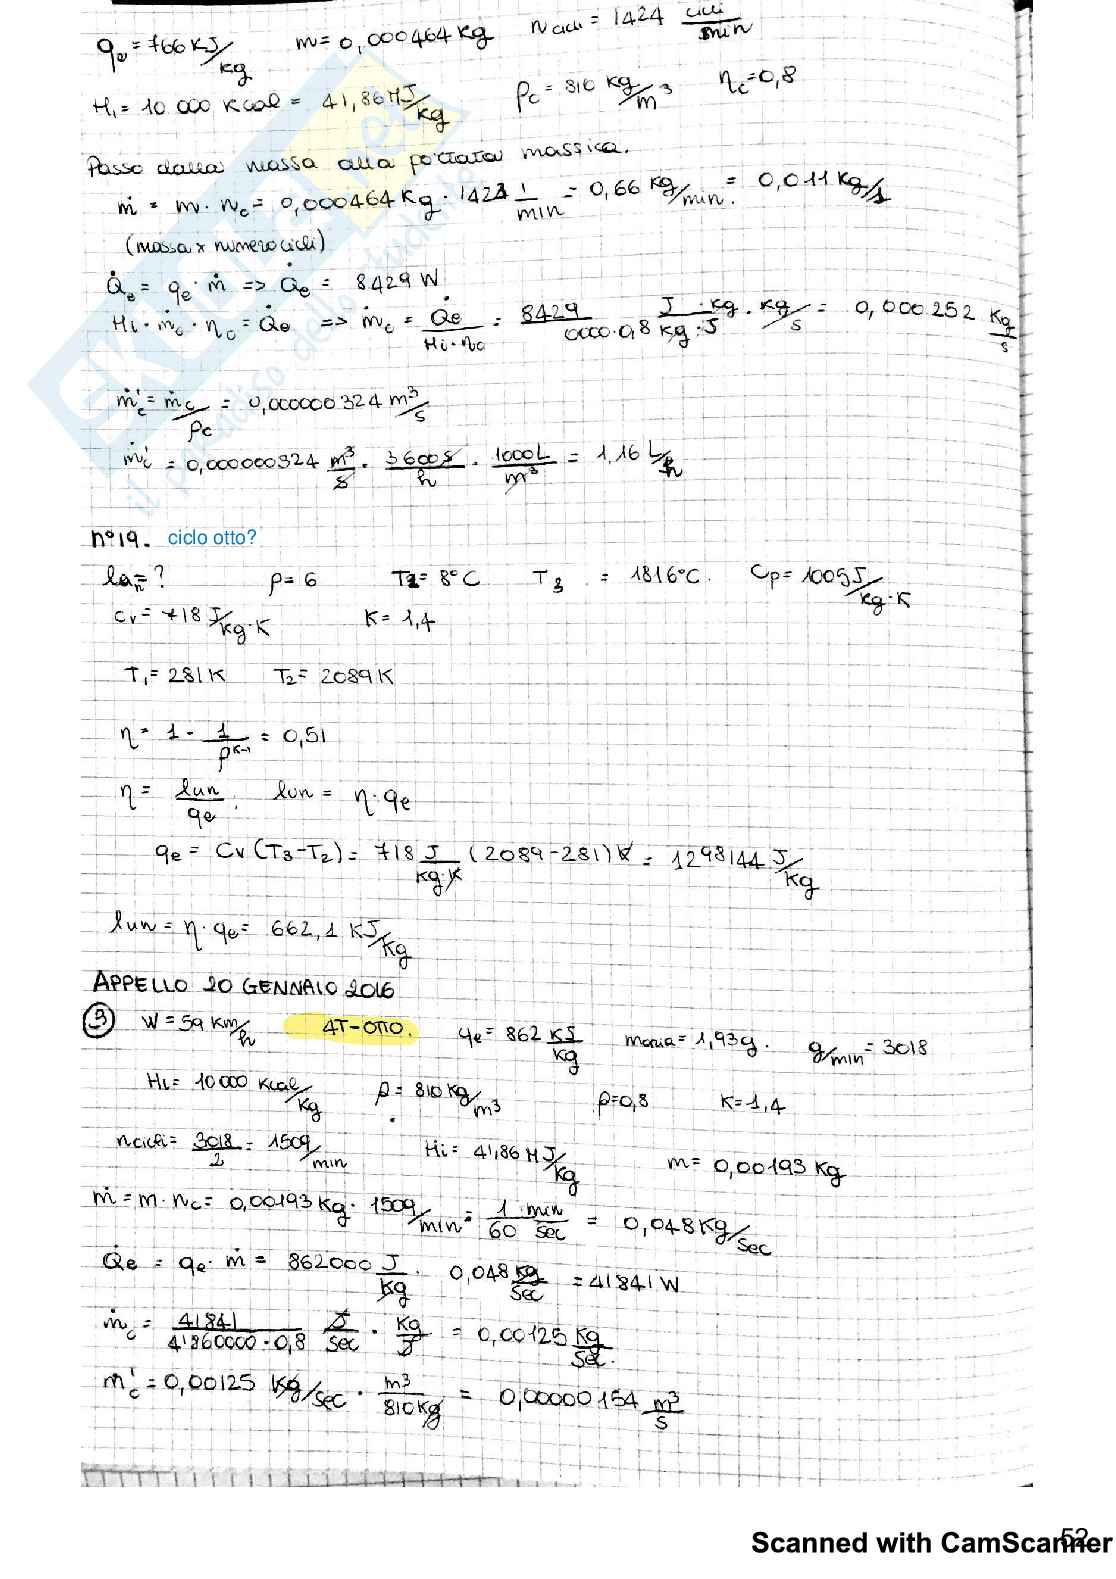 qe = 766 KJ/kg   m = 0,000464 Kg   n cicli = 1424 cicli/min
Hi = 10 000 Kcal = 41,86 MJ/kg   ρc = 810 kg/m³   ηc = 0,8
Passo dalla massa alla portata massica.
ṁ = m · nc = 0,000464 Kg · 1424 1/min = 0,66 Kg/min. = 0,011 Kg/s
(massa x numero cicli)
Q̇e = qe · ṁ => Q̇e = 8429 W
Hi · ṁc · ηc = Q̇e => ṁc = Q̇e/Hi·ηc = 8429/0000·0,8 J·kg/Kg·J · kg/s = 0,000252 Kg/s
ṁ'c = ṁc/ρc = 0,000000324 m³/s
ṁ'c = 0,000000324 m³/s · 3600s/h · 1000L/m³ = 1,16 L/h
n°19. ciclo otto?
lun = ?   ρ = 6   T1 = 8°C   T3 = 1816°C.   Cp = 1005 J/kg·K
Cv = 718 J/kg·K   K = 1,4
T1 = 281K   T2 = 2089K
η = 1 - 1/ρ^K-1 = 0,51
η = lun/qe.   lun = η · qe
qe = Cv (T3-T2) = 718 J/kg·K (2089-281)K = 1298144 J/Kg
lun = η · qe = 662,1 KJ/Kg
APPELLO 20 GENNAIO 2016
3 W = 59 Km/h   4T-OTTO.   qe = 862 KJ/Kg   maria = 1,93g.   g/min = 3018
Hi = 10000 Kcal/Kg   ρ = 810 Kg/m³   ρ=0,8   K=1,4
n cicli = 3018/2 = 1509/min   Hi = 41,86 MJ/Kg   m = 0,00193 Kg
ṁ = m · nc = 0,00193 Kg · 1509/min · 1 min/60 sec = 0,048 Kg/sec
Q̇e = qe · ṁ = 862000 J/Kg · 0,048 Kg/sec = 41841 W
ṁc = 41841/41'860000·0,8 J/sec · Kg/J = 0,00125 Kg/sec.
ṁ'c = 0,00125 Kg/sec · m³/810Kg = 0,00000154 m³/s
52
Scanned with CamScanner